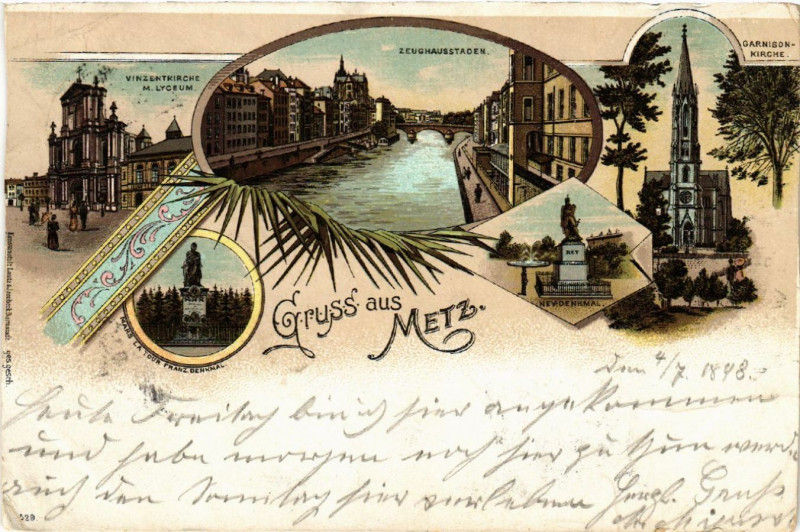 VINZENTKIRCHE
M. LYCEUM.
ZEUGHAUSSTADEN.
GARNISON-
KIRCHE.
NEY
NEY-DENKMAL.
MARS LA TOUR FRANZ. DENKMAL.
Gruss aus
METZ.
ges. gesch.
Den 4/7. 1898.
Heute Freitag bin ich hier angekommen
und habe morgen noch hier zu thun werde
auch den Sonntag hier verleben Herzl. Gruß
529